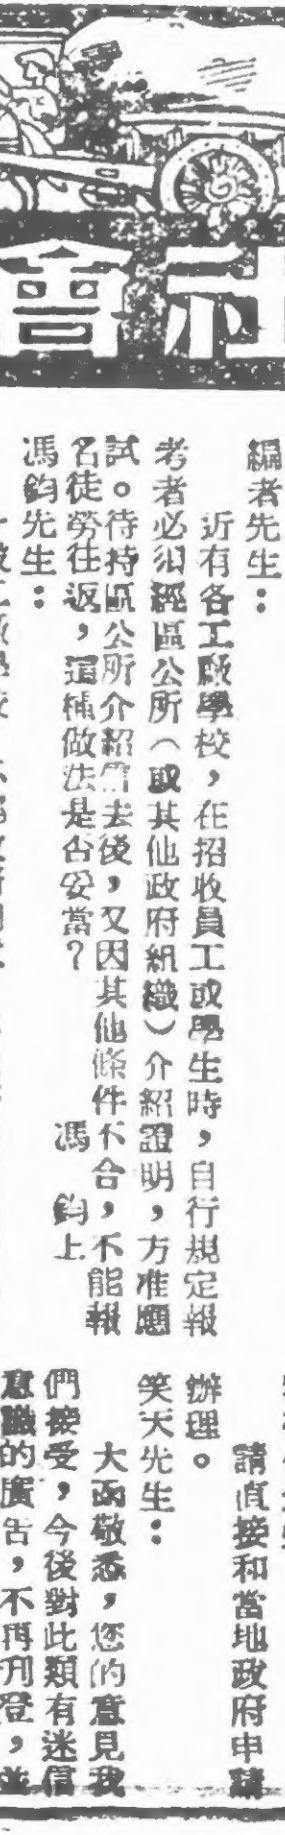 社會
編者先生：
近有各工廠學校，在招收員工或學生時，自行規定報
考者必須經區公所（或其他政府組織）介紹證明，方准應
試。待持區公所介紹信去後，又因其他條件不合，不能報
名徒勞往返，這種做法是否妥當？
馮　鈞上
馮鈞先生：
請直接和當地政府申請
辦理。
笑天先生：
大函敬悉，您的意見我
們接受，今後對此類有迷信
意識的廣告，不再刊登，並